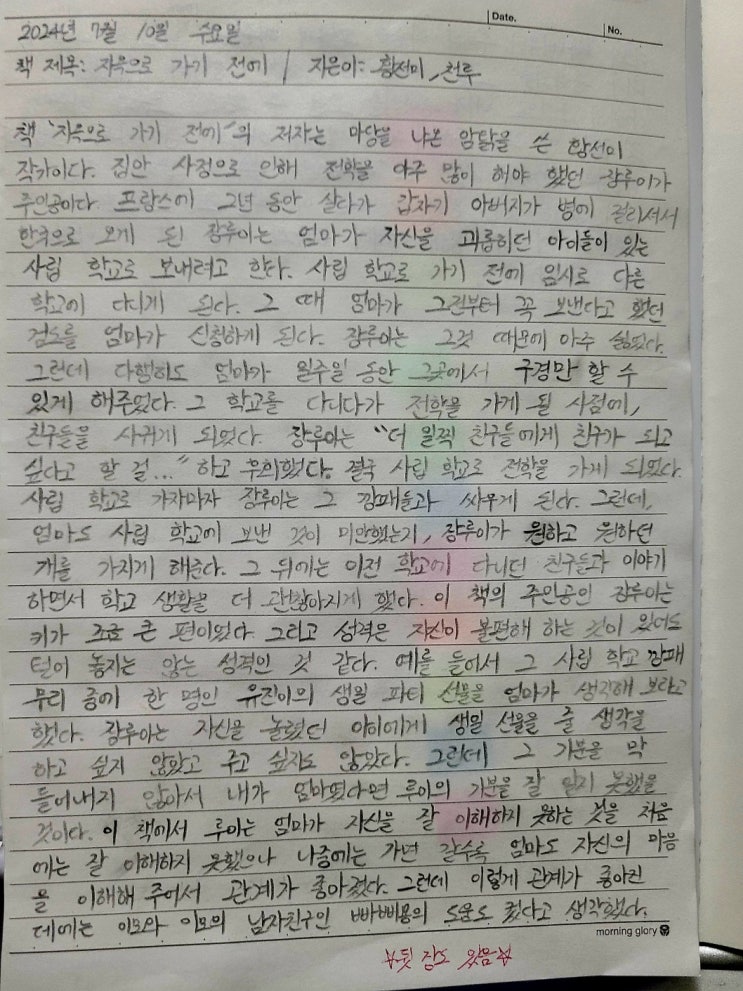 Date.
No.
2024년 7월 10일 수요일
책 제목: 지옥으로 가기 전에 / 지은이: 황선미, 천루
책 '지옥으로 가기 전에'의 저자는 마당을 나온 암탉을 쓴 황선미
작가이다. 집안 사정으로 인해 전학을 아주 많이 해야 했던 장루이가
주인공이다. 프랑스에 2년 동안 살다가 갑자기 아버지가 병에 걸리셔서
한국으로 오게 된 장루이는 엄마가 자신을 괴롭히던 아이들이 있는
사립 학교로 보내려고 한다. 사립 학교로 가기 전에 임시로 다른
학교에 다니게 된다. 그 때 엄마가 그전부터 꼭 보낸다고 했던
검도를 엄마가 신청하게 된다. 장루이는 그것 때문에 아주 싫었다.
그런데 다행히도 엄마가 일주일 동안 그곳에서 구경만 할 수
있게 해주었다. 그 학교를 다니다가 전학을 가게 될 시점에,
친구들을 사귀게 되었다. 장루이는 "더 일찍 친구들에게 친구가 되고
싶다고 할 걸..." 하고 후회했다. 결국 사립 학교로 전학을 가게 되었다.
사립 학교로 가자마자 장루이는 그 깡패들과 싸우게 된다. 그런데,
엄마도 사립 학교에 보낸 것이 미안했는지, 장루이가 원하고 원하던
개를 가지게 해준다. 그 뒤에는 이전 학교에 다니던 친구들과 이야기
하면서 학교 생활을 더 괜찮아지게 했다. 이 책의 주인공인 장루이는
키가 조금 큰 편이었다. 그리고 성격은 자신이 불편해 하는 것이 있어도
털어 놓지는 않는 성격인 것 같다. 예를 들어서 그 사립 학교 깡패
무리 중에 한 명인 유진이의 생일 파티 선물을 엄마가 생각해 보라고
했다. 장루이는 자신을 놀렸던 아이에게 생일 선물을 줄 생각을
하고 싶지 않았고 주고 싶지도 않았다. 그런데 그 기분을 막
들어내지 않아서 내가 엄마였다면 루이의 기분을 잘 알지 못했을
것이다. 이 책에서 루이는 엄마가 자신을 잘 이해하지 못하는 것을 처음
에는 잘 이해하지 못했으나 나중에는 가면 갈수록 엄마도 자신의 마음
을 이해해 주어서 관계가 좋아졌다. 그런데 이렇게 관계가 좋아진
데에는 이모와 이모의 남자친구인 빠삐용의 도움도 컸다고 생각했다.
morning glory
☆뒷 장도 있음☆